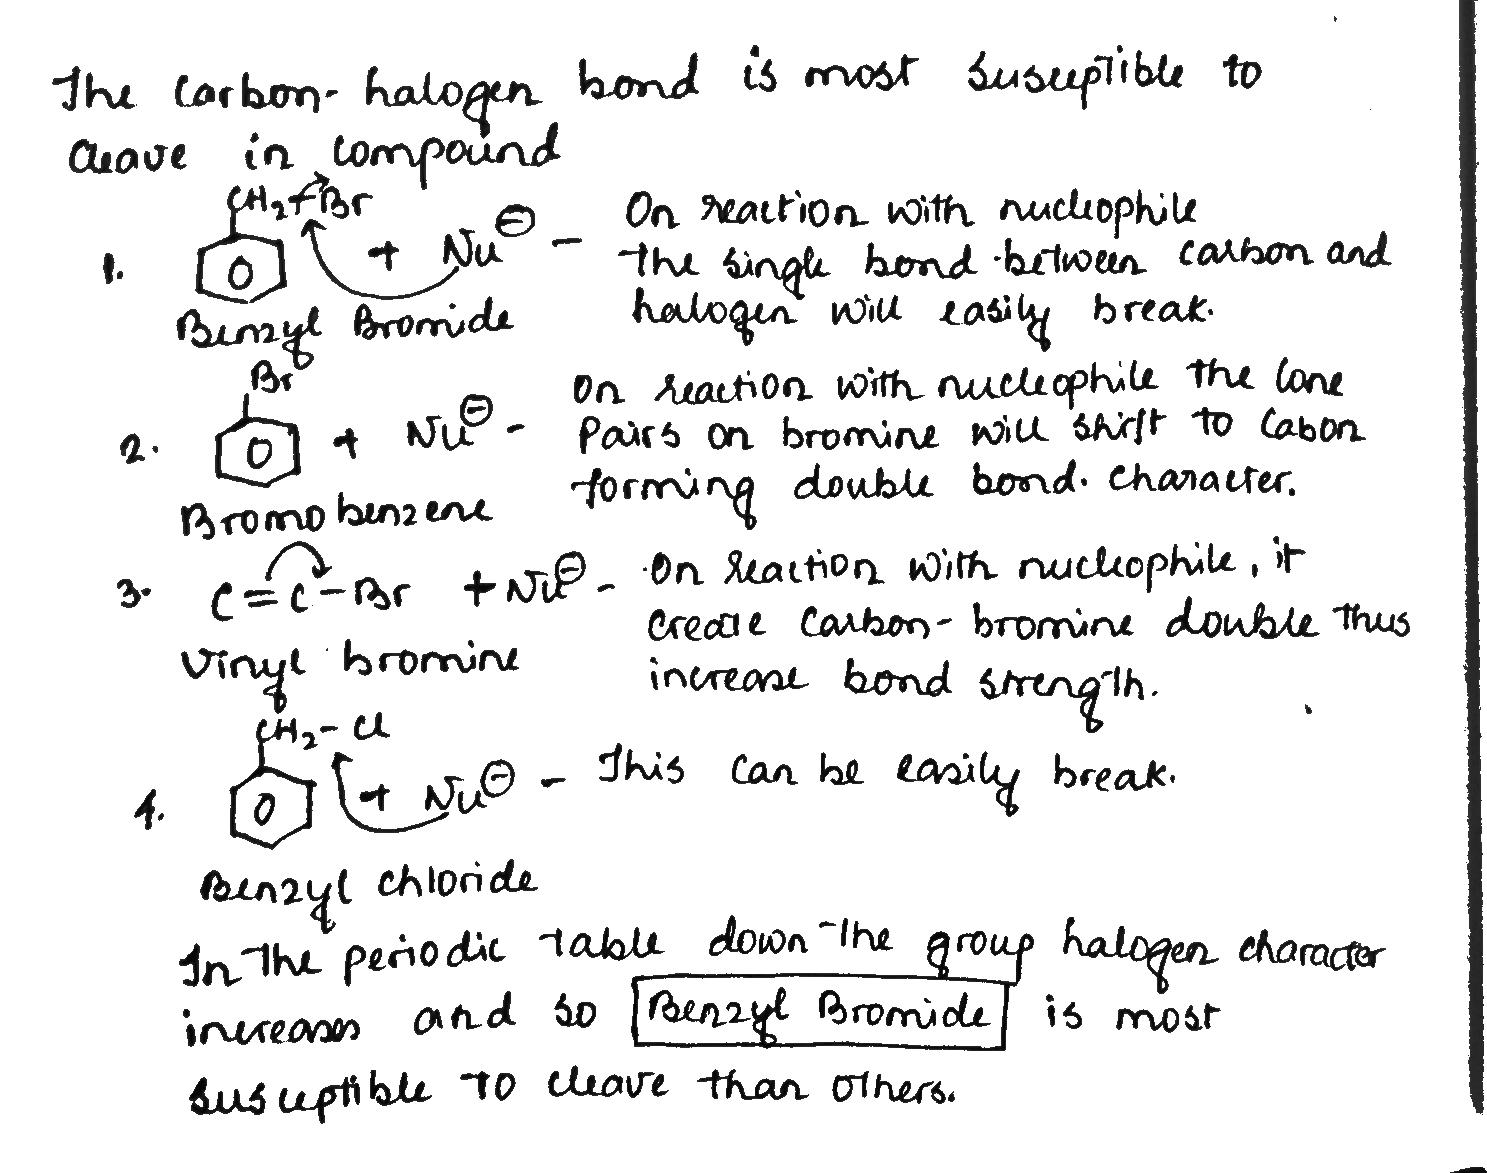 The Carbon-halogen bond is most suseptible to
cleave in compound
CH₂-Br
1. + Nu⊖ - On reaction with nucleophile
the single bond between carbon and
Benzyl Bromide halogen will easily break.
Br
2. + Nu⊖ - On reaction with nucleophile the lone
pairs on bromine will shift to Cabon
Bromobenzene forming double bond. character.
3. C=C-Br + Nu⊖ - On reaction with nucleophile, it
create Carbon-bromine double thus
Vinyl bromine increase bond strength.
CH₂-Cl
4. + Nu⊖ - This can be easily break.
Benzyl chloride
In the periodic table down the group halogen character
increases and so Benzyl Bromide is most
susceptible to cleave than others.